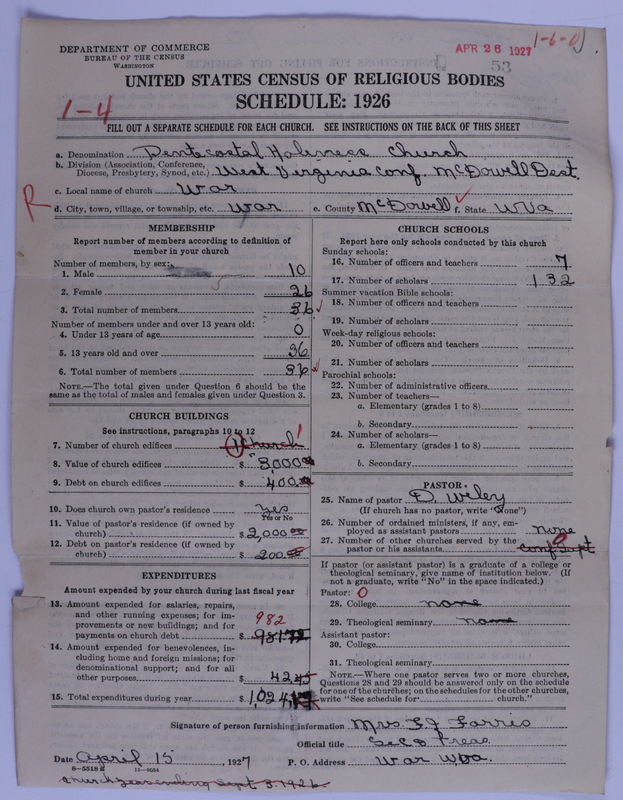 DEPARTMENT OF COMMERCE
BUREAU OF THE CENSUS
WASHINGTON
APR 26 1927
1-6-0
53
UNITED STATES CENSUS OF RELIGIOUS BODIES
SCHEDULE: 1926
1-4
FILL OUT A SEPARATE SCHEDULE FOR EACH CHURCH. SEE INSTRUCTIONS ON THE BACK OF THIS SHEET
a. Denomination Pentecostal Holiness Church
b. Division (Association, Conference, Diocese, Presbytery, Synod, etc.) West Virginia Conf. McDowell Dest.
c. Local name of church War
R
d. City, town, village, or township, etc. War e. County McDowell f. State W Va
MEMBERSHIP
Report number of members according to definition of
member in your church
Number of members, by sex:
1. Male 10
2. Female 26
3. Total number of members 36
Number of members under and over 13 years old:
4. Under 13 years of age 0
5. 13 years old and over 36
6. Total number of members 36
NOTE.—The total given under Question 6 should be
same as the total of males and females given under Question 3.
CHURCH BUILDINGS
See instructions, paragraphs 10 to 12
7. Number of church edifices 1 Church 1
8. Value of church edifices $ 3,000.00
9. Debt on church edifices $ 400.00
10. Does church own pastor's residence Yes
Yes or No
11. Value of pastor's residence (if owned by
church) $ 2,000.00
12. Debt on pastor's residence (if owned by
church) $ 200.00
EXPENDITURES
Amount expended by your church during last fiscal year
13. Amount expended for salaries, repairs,
and other running expenses; for im-
provements or new buildings; and for
payments on church debt $ 981.72
982
14. Amount expended for benevolences, in-
cluding home and foreign missions; for
denominational support; and for all
other purposes $ 42.45
15. Total expenditures during year $ 1,024.17
CHURCH SCHOOLS
Report here only schools conducted by this church
Sunday schools:
16. Number of officers and teachers 7
17. Number of scholars 132
Summer vacation Bible schools:
18. Number of officers and teachers
19. Number of scholars
Week-day religious schools:
20. Number of officers and teachers
21. Number of scholars
Parochial schools:
22. Number of administrative officers
23. Number of teachers—
a. Elementary (grades 1 to 8)
b. Secondary
24. Number of scholars—
a. Elementary (grades 1 to 8)
b. Secondary
PASTOR
25. Name of pastor D. Wiley
(If church has no pastor, write "None")
26. Number of ordained ministers, if any, em-
ployed as assistant pastors none
27. Number of other churches served by the 0
pastor or his assistants Conf Supt
If pastor (or assistant pastor) is a graduate of a college or
theological seminary, give name of institution below. (If
not a graduate, write "No" in the space indicated.)
Pastor: 0
28. College none
29. Theological seminary none
Assistant pastor:
30. College
31. Theological seminary
NOTE.—Where one pastor serves two or more churches,
Questions 28 and 29 should be answered only on the schedule
for one of the churches; on the schedules for the other churches,
write "See schedule for church."
Signature of person furnishing information Mrs. F J Farris
Official title Sec & Treas
Date April 15, 1927 P. O. Address War W Va.
6—5518 11—9084
Church year ending Sept 3. 1926.